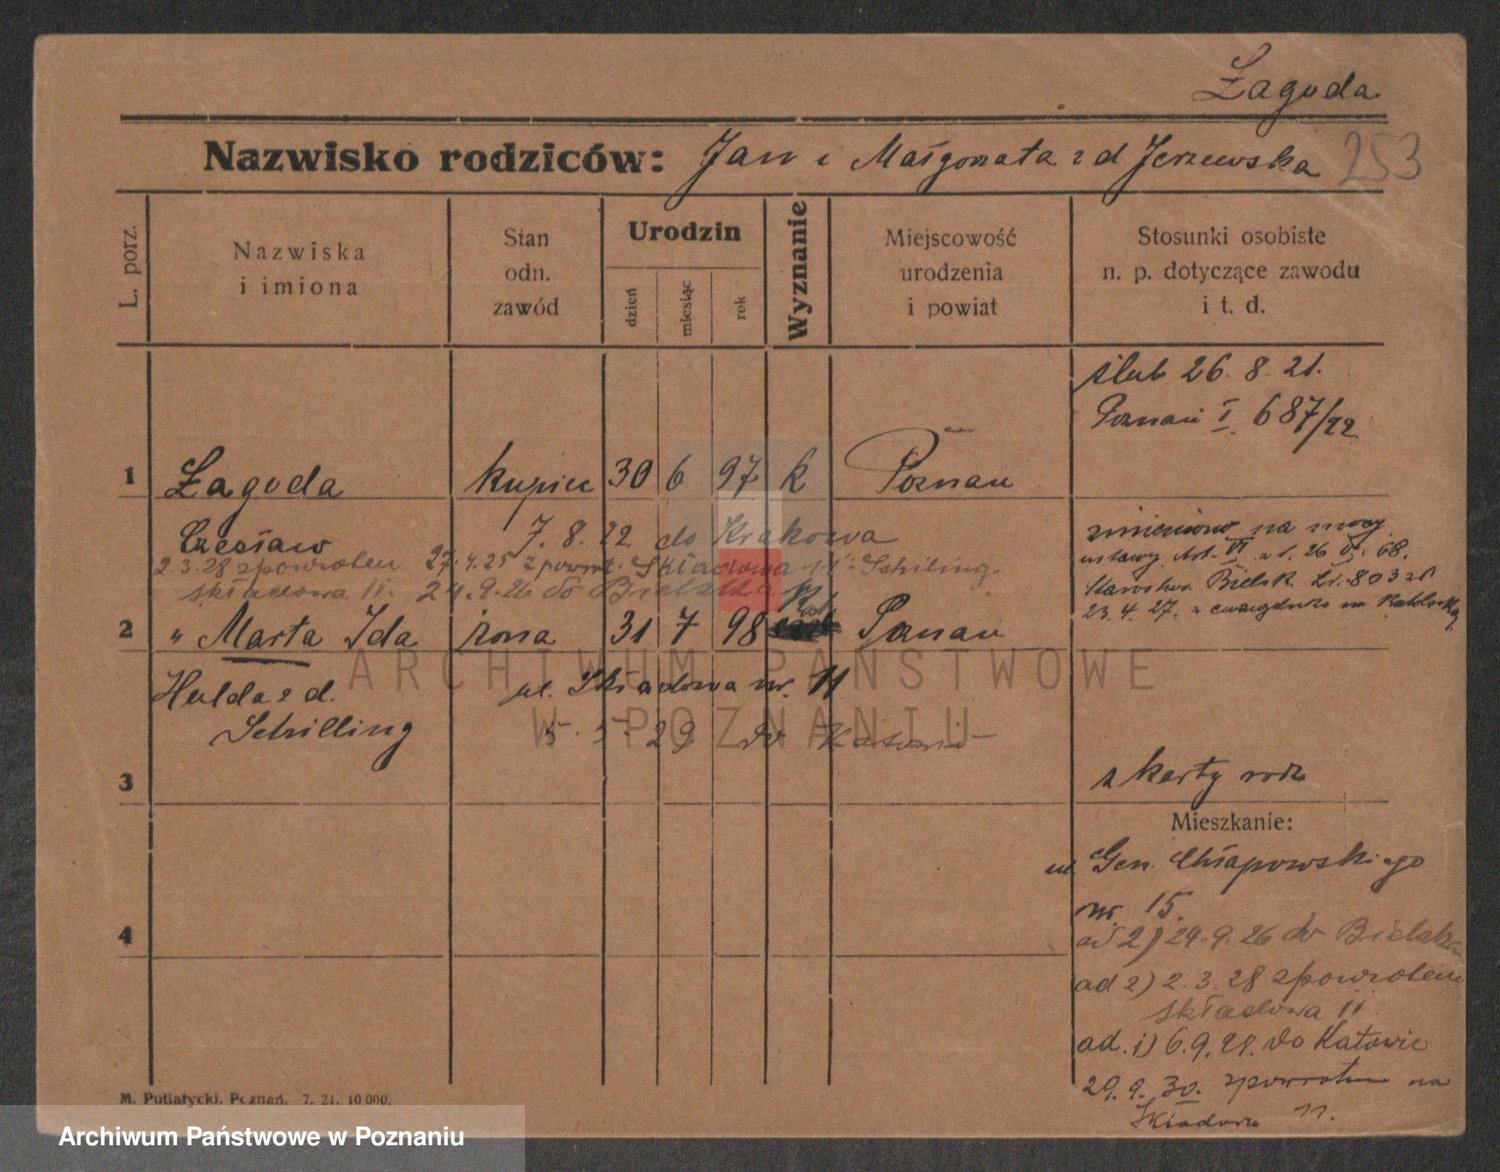 Łagoda
Nazwisko rodziców: Jan i Małgorzata z d Jerzewska 253
L. porz.
Nazwiska
i imiona
Stan
odn.
zawód
Urodzin
dzień
miesiąc
rok
Wyznanie
Miejscowość
urodzenia
i powiat
Stosunki osobiste
n. p. dotyczące zawodu
i t. d.
ślub 26. 8. 21.
Poznań I. 687/22
1 Łagoda kupiec 30 6 97 k Poznań
Czesław 7. 8. 22 do Krakowa
2.3.28 zpowrotem 27.4.25 zpowrot. Składowa 11 Schiling.
składowa 11. 24.9.26 do Bielska
zmieniono na mocy
ustawy Art. VI z d. 26 68.
Starostwo Bielsk L. 803
23. 4. 27.
2 " Marta Ida żona 31 7 98 Poznań
Hulda z d. ul. Składowa nr. 11
Schilling 5. 5. 29 do Katowic
3
z karty rodz
Mieszkanie:
ul. Gen. Chłapowskiego
nr. 15.
ad 2) 24.9.26 do Bielska
ad 2) 2.3.28 zpowrotem
składowa 11
ad. 1) 6.9.28. do Katowic
29. 9. 30. zpowrotem na
Składowa 11.
4
M. Putiatycki, Poznań. 7. 21. 10 000.
ARCHIWUM PAŃSTWOWE
W POZNANIU
Archiwum Państwowe w Poznaniu